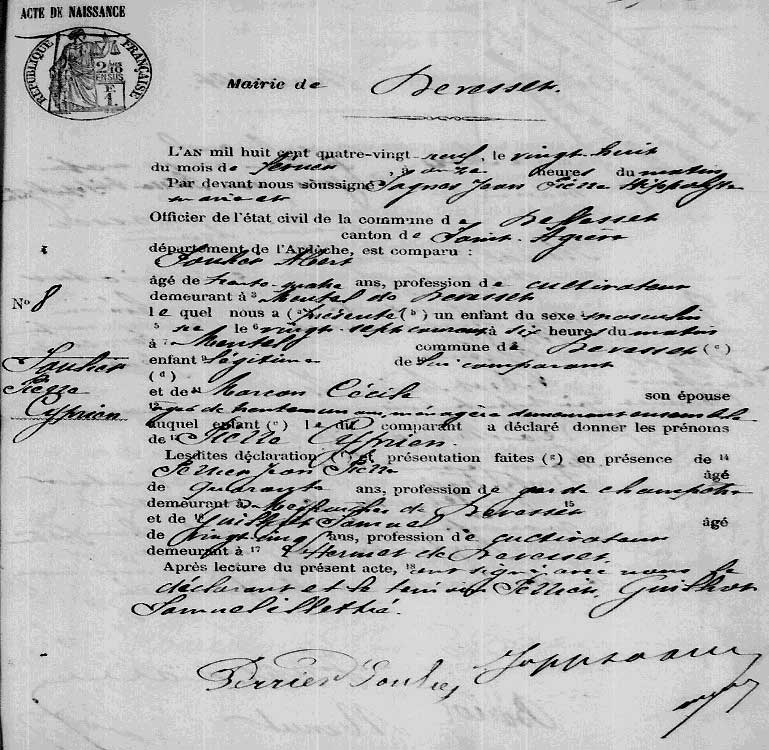 ACTE DE NAISSANCE
RÉPUBLIQUE FRANÇAISE
2/10 EN SUS
F. 1.
Mairie de Devesset
L'AN mil huit cent quatre-vingt neuf, le vingt huit
du mois de , à onze heures du matin
Par devant nous soussigné Jean Pierre Hippolyte
Officier de l'état civil de la commune de Devesset
canton de Saint-Agrève
département de l'Ardèche, est comparu :
Soulier Albert
âgé de ans, profession de cultivateur
demeurant à 3 de Devesset
le quel nous a (a) présenté (b) un enfant du sexe masculin
5 né le 6 vingt sept courant à six heures du matin
à 7 commune de Devesset (c)
enfant 9 légitime de 10 lui comparant
(d)
et de 11 Marcon Cécile son épouse
12 ménagère demeurant ensemble
auquel enfant (e) le dit comparant a déclaré donner les prénoms
de 13 Pierre Cyprien.
Lesdites déclaration (f) et présentation faites (g) en présence de 14
Perrier Jean Pierre âgé
de quarante ans, profession de garde champêtre
demeurant à de Devesset 15
et de 16 Guilhot Samuel âgé
de vingt cinq ans, profession de cultivateur
demeurant à 17 de Devesset
Après lecture du présent acte, 18 ont signé avec nous le
déclarant et le témoin Perrier, Guilhot
Samuel illettré.
No 8
Soulier
Pierre
Cyprien
Perrier Soulier